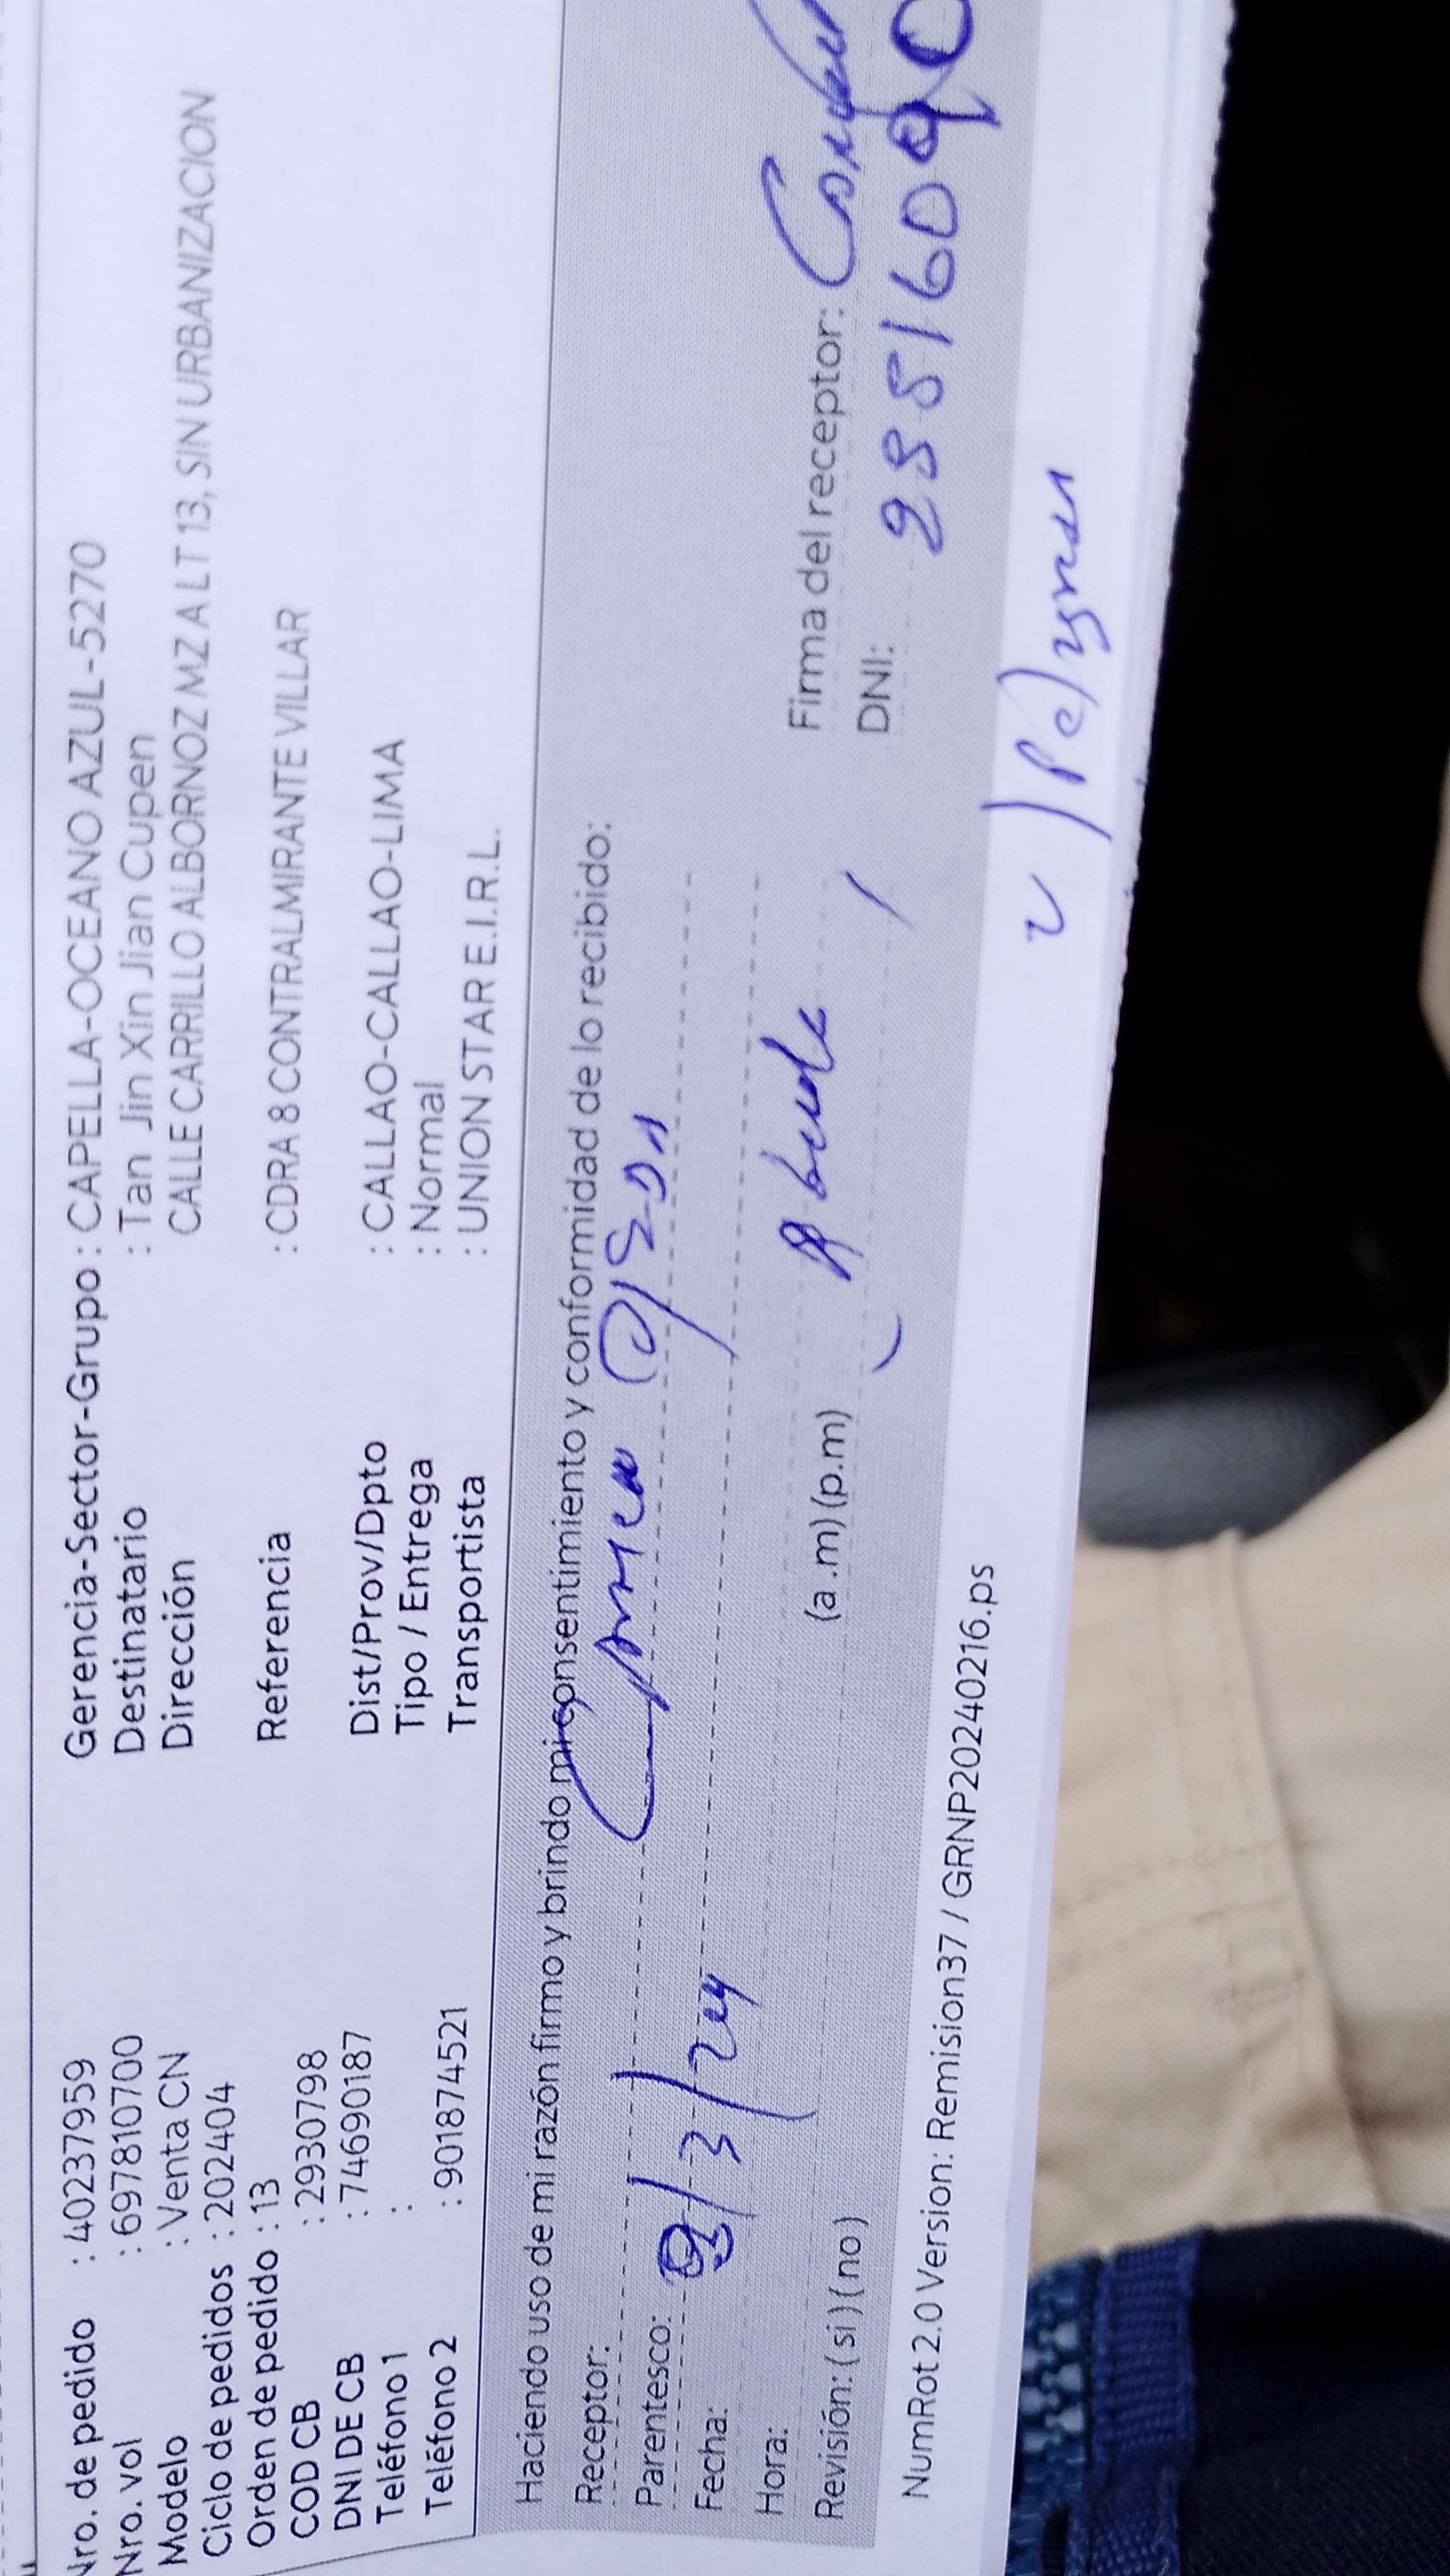 Nro. de pedido : 40237959 Gerencia-Sector-Grupo : CAPELLA-OCEANO AZUL-5270
Nro. vol : 697810700 Destinatario : Tan Jin Xin Jian Cupen
Modelo : Venta CN Dirección CALLE CARRILLO ALBORNOZ MZ A LT 13, SIN URBANIZACION
Ciclo de pedidos : 202404
Orden de pedido : 13 Referencia : CDRA 8 CONTRALMIRANTE VILLAR
COD CB : 2930798
DNI DE CB : 74690187 Dist/Prov/Dpto : CALLAO-CALLAO-LIMA
Teléfono 1 : Tipo / Entrega : Normal
Teléfono 2 : 901874521 Transportista : UNION STAR E.I.R.L.
Haciendo uso de mi razón firmo y brindo mi consentimiento y conformidad de lo recibido:
Receptor:
Parentesco:
Fecha: /3/24
Hora: (a .m) (p.m) Abuela Firma del receptor:
Revisión: ( si ) ( no ) DNI:
NumRot 2.0 Version: Remision37 / GRNP20240216.ps